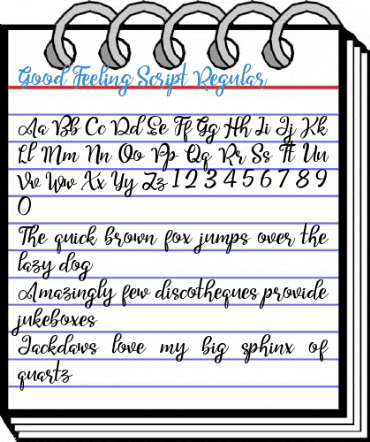 Good Feeling Script Regular
Aa Bb Cc Dd Ee Ff Gg Hh Ii Jj Kk
Ll Mm Nn Oo Pp Qq Rr Ss Tt Uu
Vv Ww Xx Yy Zz 1 2 3 4 5 6 7 8 9
0
The quick brown fox jumps over the
lazy dog
Amazingly few discotheques provide
jukeboxes
Jackdaws love my big sphinx of
quartz